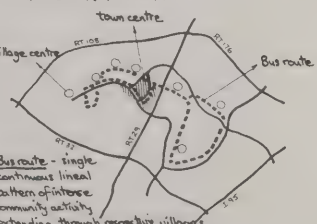 town centre
village centre
RT. 108
RT. 176
Bus route
RT 32
RT 29
I 95
Bus route - single
continuous lineal
pattern of intense
community activity
extending through respective villages